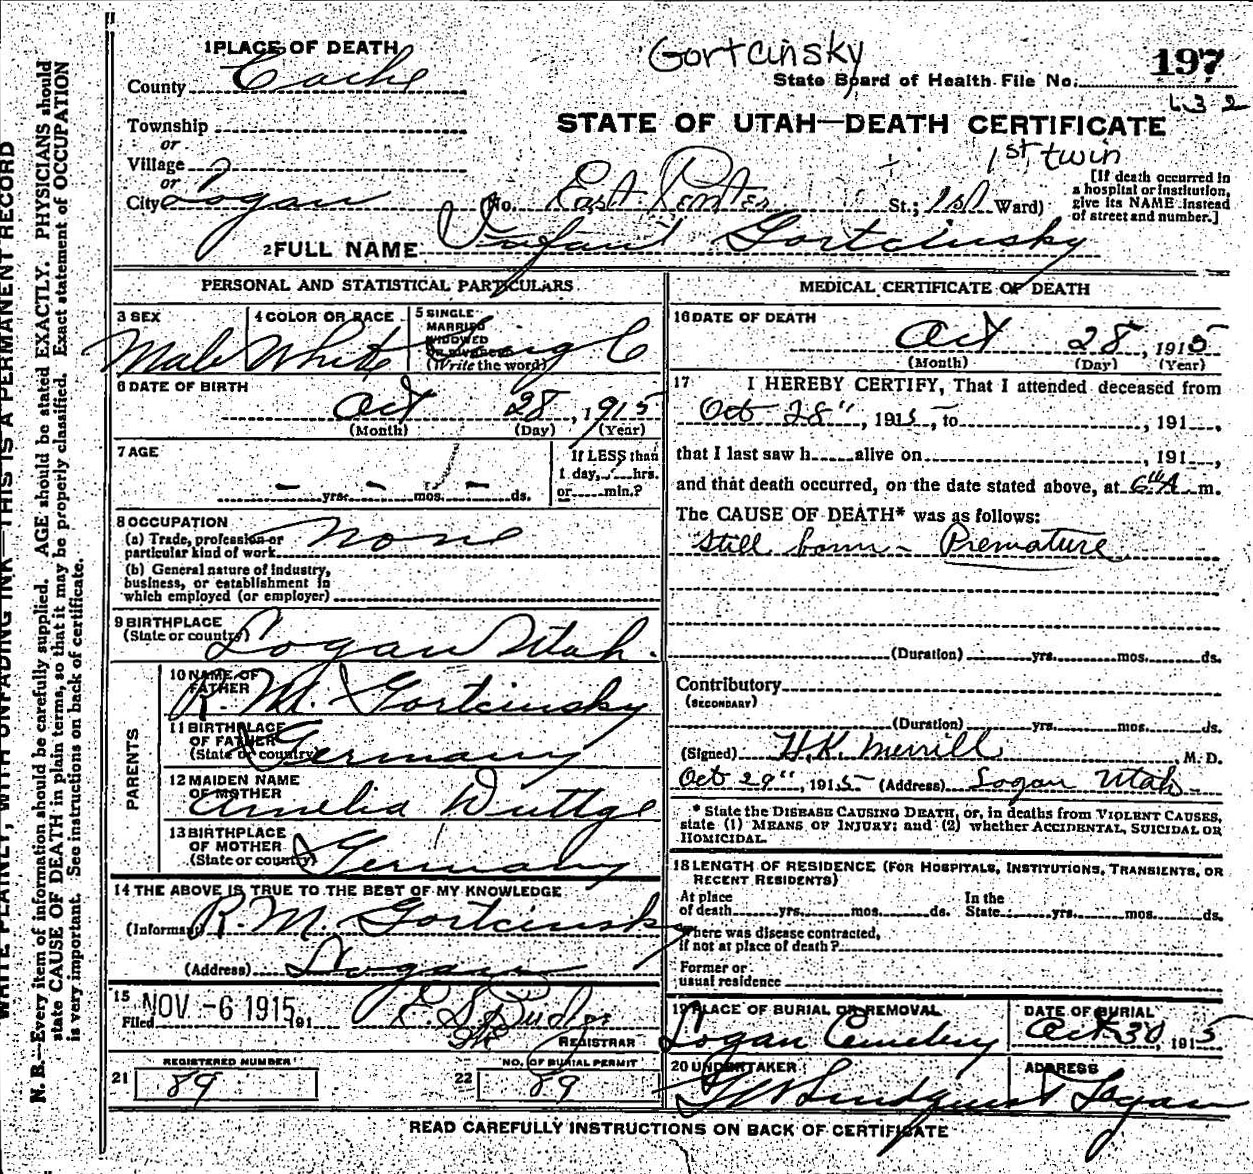 Gortcinsky
1 PLACE OF DEATH
County Cache
State Board of Health File No. 197
432
Township
or
STATE OF UTAH—DEATH CERTIFICATE
Village
or
1st twin
City Logan (No. East Center St.; 1st Ward)
[If death occurred in
a hospital or institution,
give its NAME instead
of street and number.]
2 FULL NAME Infant Gortcinsky
PERSONAL AND STATISTICAL PARTICULARS
3 SEX Male
4 COLOR OR RACE White
5 SINGLE
MARRIED
WIDOWED
OR DIVORCED
(Write the word)
6 DATE OF BIRTH
Oct 28, 1915
(Month) (Day) (Year)
7 AGE
- yrs. - mos. - ds.
If LESS than
1 day, hrs.
or min.?
8 OCCUPATION
(a) Trade, profession or
particular kind of work None
(b) General nature of industry,
business, or establishment in
which employed (or employer)
9 BIRTHPLACE
(State or country) Logan Utah.
PARENTS
10 NAME OF
FATHER R. M. Gortcinsky
11 BIRTHPLACE
OF FATHER
(State or country) Germany
12 MAIDEN NAME
OF MOTHER Amelia Wuttge
13 BIRTHPLACE
OF MOTHER
(State or country) Germany
14 THE ABOVE IS TRUE TO THE BEST OF MY KNOWLEDGE
(Informant) R. M. Gortcinsky
(Address) Logan
15
Filed NOV -6 1915, 191
REGISTRAR
REGISTERED NUMBER
21 89
NO. OF BURIAL PERMIT
22 89
MEDICAL CERTIFICATE OF DEATH
16 DATE OF DEATH
Oct 28, 1915
(Month) (Day) (Year)
17 I HEREBY CERTIFY, That I attended deceased from
Oct 28", 1915, to , 191 ,
that I last saw h alive on , 191 ,
and that death occurred, on the date stated above, at 6 A m.
The CAUSE OF DEATH* was as follows:
Still born - Premature
(Duration) yrs. mos. ds.
Contributory
(SECONDARY)
(Duration) yrs. mos. ds.
(Signed) H.K. Merrill M. D.
Oct 29", 1915 (Address) Logan Utah
* State the DISEASE CAUSING DEATH, or, in deaths from VIOLENT CAUSES,
state (1) MEANS OF INJURY; and (2) whether ACCIDENTAL, SUICIDAL OR
HOMICIDAL.
18 LENGTH OF RESIDENCE (FOR HOSPITALS, INSTITUTIONS, TRANSIENTS, OR
RECENT RESIDENTS)
At place
of death yrs. mos. ds.
In the
State yrs. mos. ds.
Where was disease contracted,
if not at place of death?
Former or
usual residence
19 PLACE OF BURIAL OR REMOVAL
Logan Cemetery
DATE OF BURIAL
Oct 30, 1915
20 UNDERTAKER
Lindquist
ADDRESS
Logan
READ CAREFULLY INSTRUCTIONS ON BACK OF CERTIFICATE
WRITE PLAINLY, WITH UNFADING INK—THIS IS A PERMANENT RECORD
N. B.—Every item of information should be carefully supplied. AGE should be stated EXACTLY. PHYSICIANS should
state CAUSE OF DEATH in plain terms, so that it may be properly classified. Exact statement of OCCUPATION
is very important. See instructions on back of certificate.